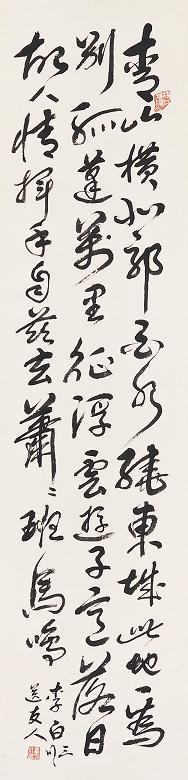 青山橫北郭白水繞東城此地一為
別孤蓬萬里征浮雲遊子意落日
故人情揮手自茲去蕭〻班馬鳴
李白
送友人